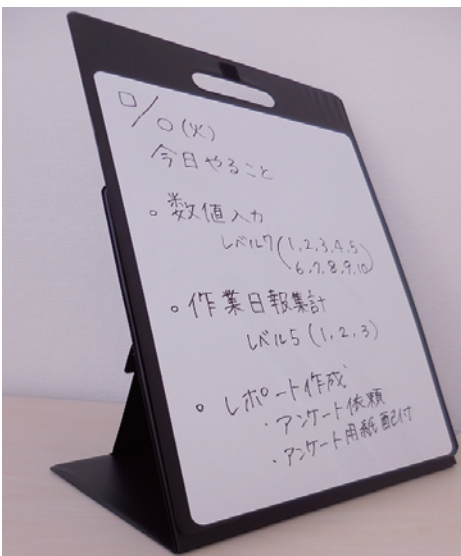 □/○(火)
今日やること
。数値入力
レベル7(1,2,3,4,5
6,7,8,9,10)
。作業日報集計
レベル5(1,2,3)
。レポート作成
・アンケート依頼
・アンケート用紙配付